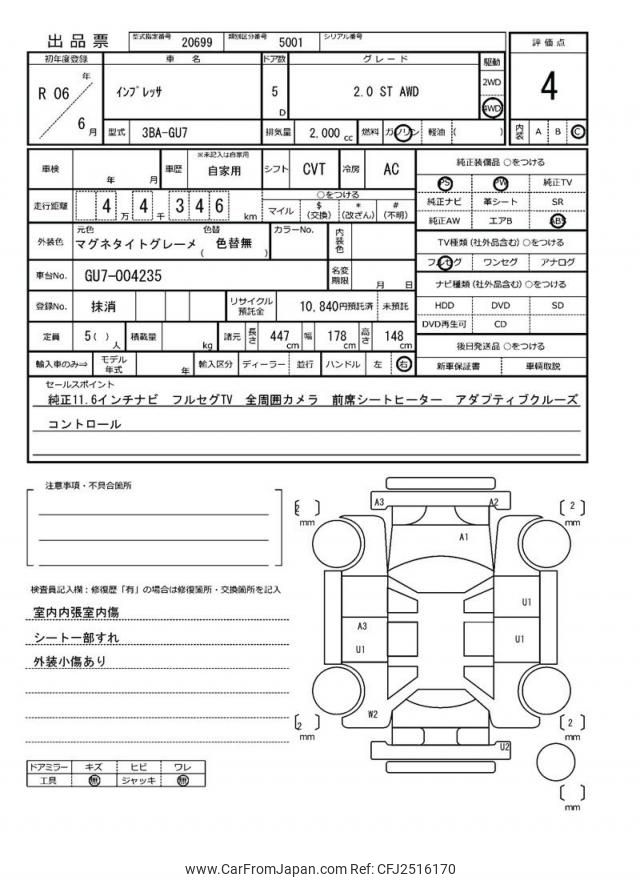 出品票 型式指定番号 20699 類別区分番号 5001 シリアル番号
評価点
4
内装 A B C
初年度登録 車名 ドア数 グレード 駆動
R 06 年 6 月
インプレッサ 5 D 2.0 ST AWD
2WD
4WD
型式 3BA-GU7 排気量 2,000 cc 燃料 ガソリン 軽油 ( )
車検 年 月 車歴 ※未記入は自家用 自家用 シフト CVT 冷房 AC
走行距離 4 万 4 千 3 4 6 km
○をつける
マイル $(交換) *(改ざん) #(不明)
外装色 元色 マグネタイトグレーメ 色替 ( 色替無 ) カラーNo. 内装色
車台No. GU7-004235 名変期限 月 日
登録No. 抹消 リサイクル預託金 10,840円預託済 未預託
定員 5( ) 人 積載量 kg 諸元 長さ 447 cm 幅 178 cm 高さ 148 cm
輸入車のみ⇒ モデル年式 年 輸入区分 ディーラー 並行 ハンドル 左 右
純正装備品 ○をつける
PS PW 純正TV
純正ナビ 革シート SR
純正AW エアB ABS
TV種類 (社外品含む) ○をつける
フルセグ ワンセグ アナログ
ナビ種類 (社外品含む) ○をつける
HDD DVD SD
DVD再生可 CD
後日発送品 ○をつける
新車保証書 車輌取説
セールスポイント
純正11.6インチナビ フルセグTV 全周囲カメラ 前席シートヒーター アダプティブクルーズ
コントロール
注意事項・不具合箇所
検査員記入欄：修復歴「有」の場合は修復箇所・交換箇所を記入
室内内張室内傷
シート一部すれ
外装小傷あり
ドアミラー キズ ヒビ ワレ
工具 無 ジャッキ 無
A3 A2
2 mm
2 mm
A1
U1
A3
U1
U1
W2
U2
2 mm
2 mm
mm
www.CarFromJapan.com Ref: CFJ2516170